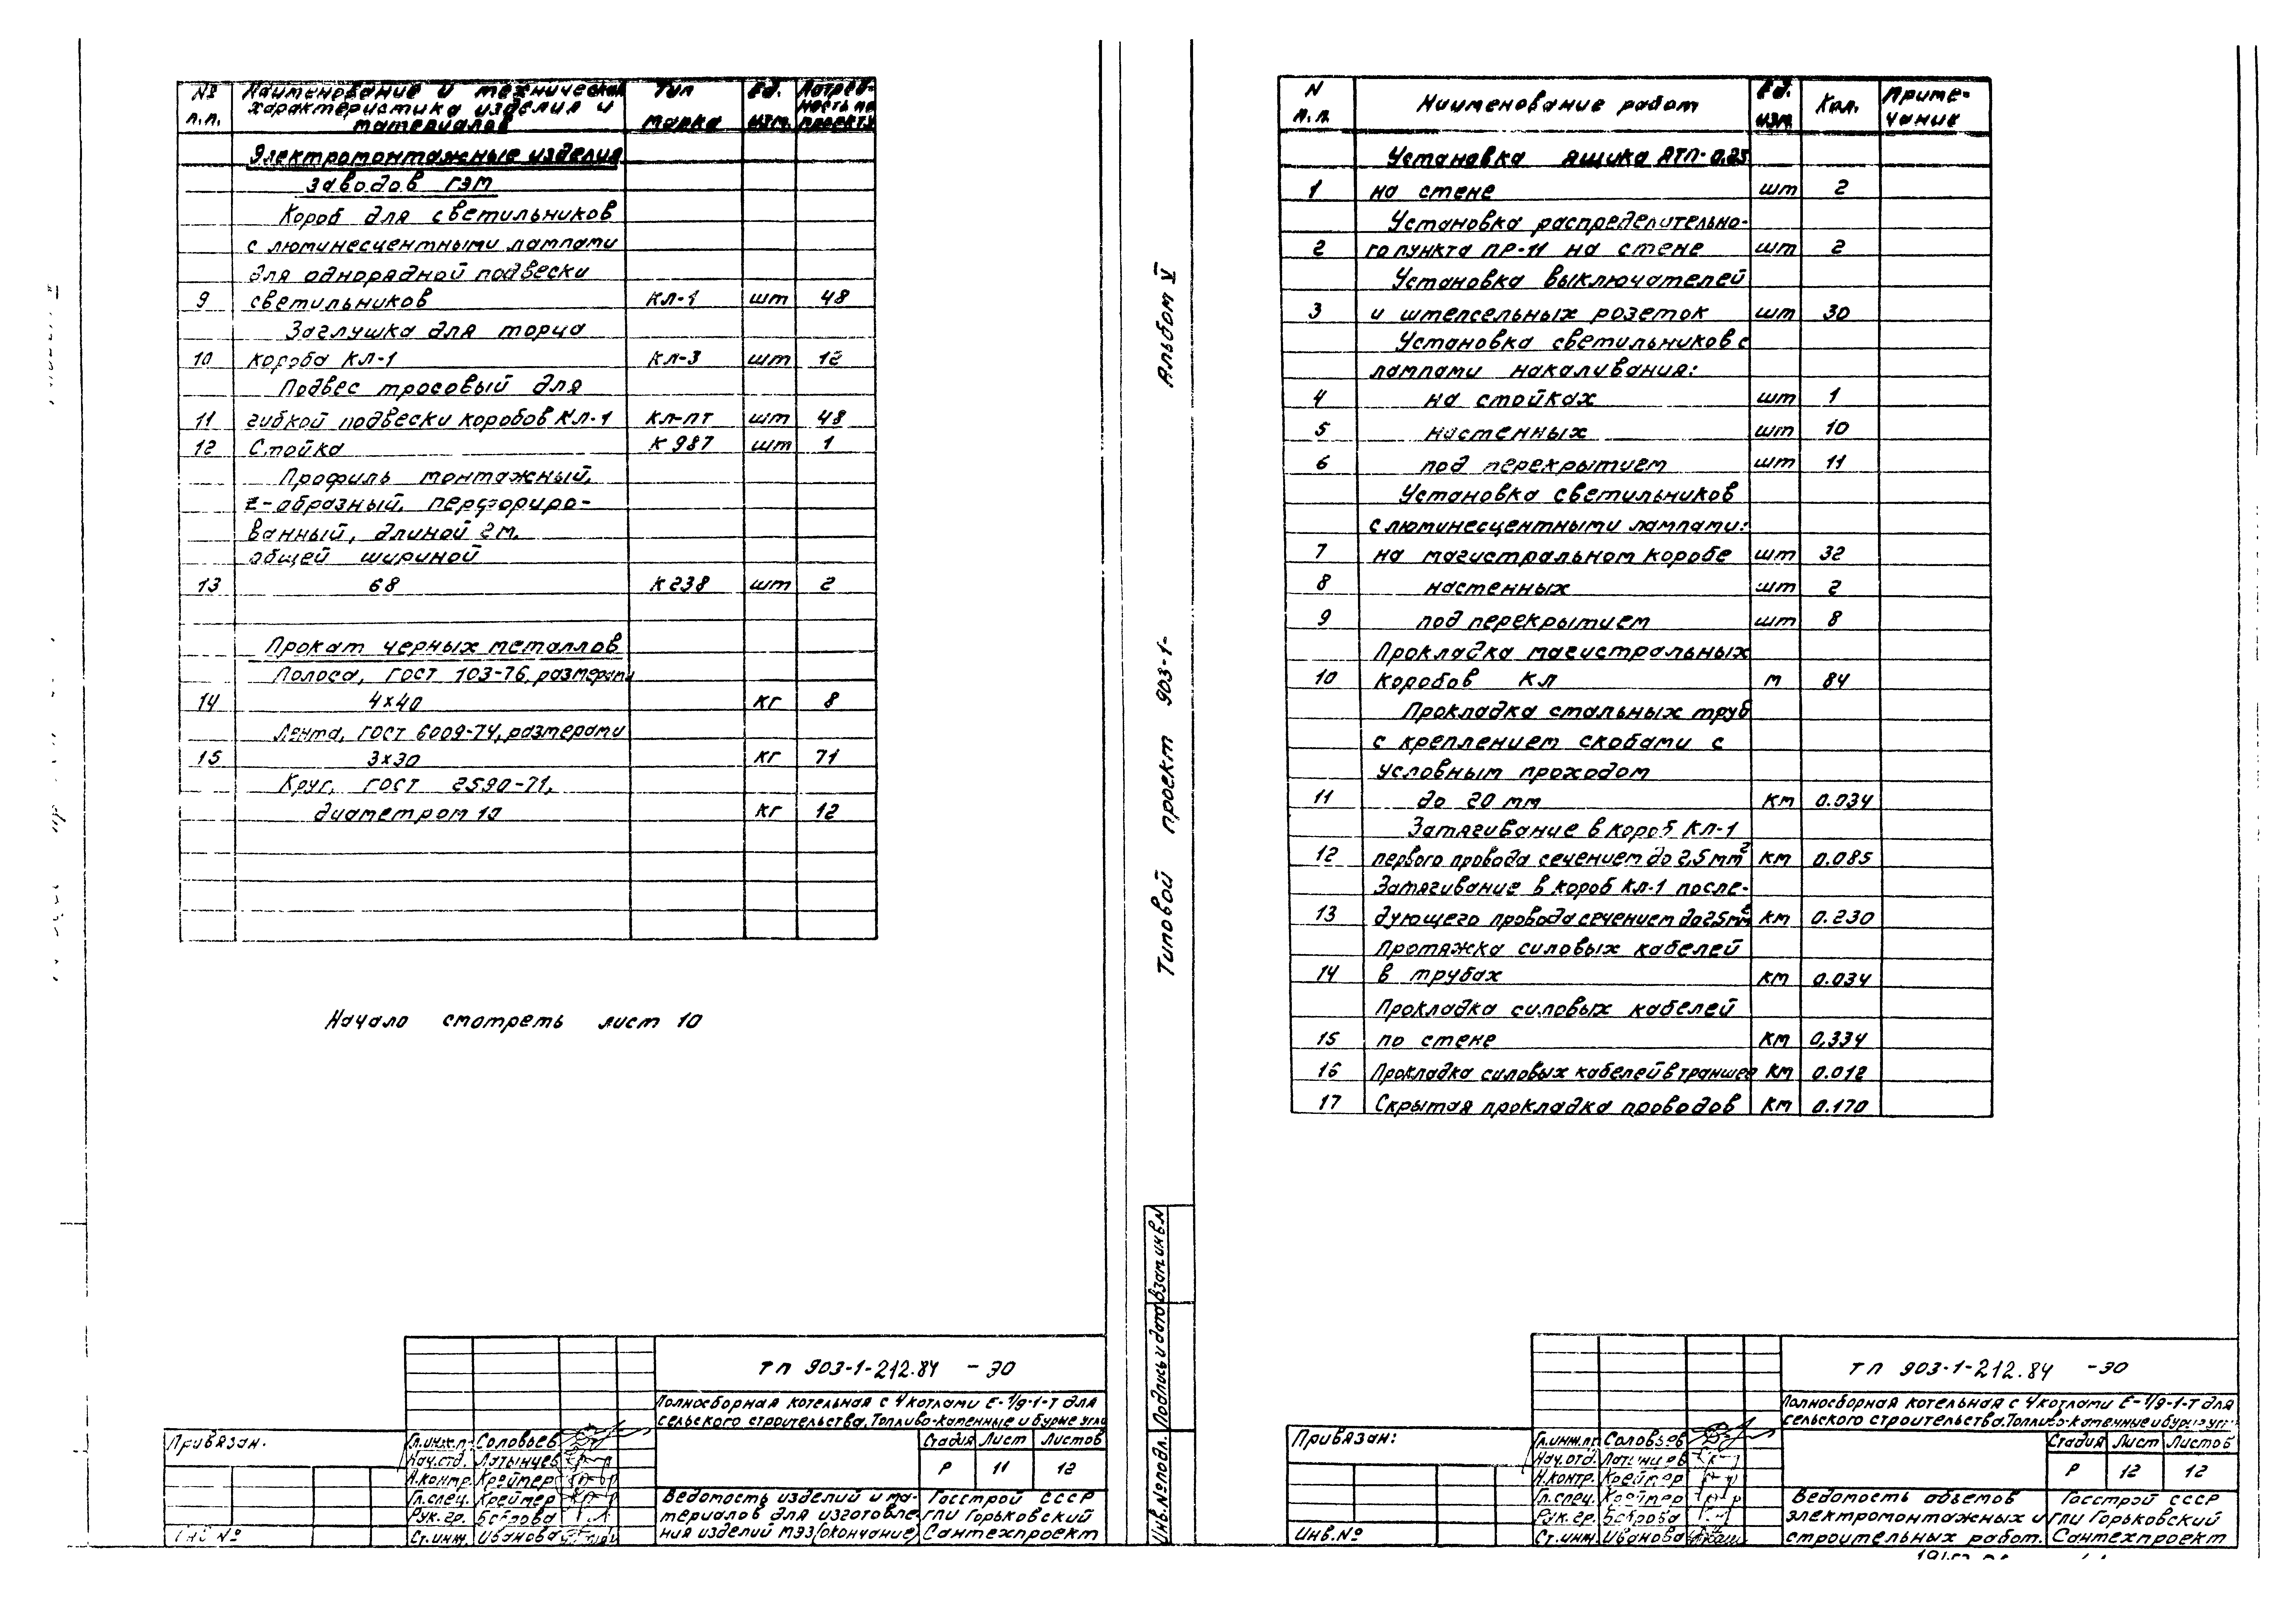 № п.п. Наименование и техническая характеристика изделия и материалов Тип марка Ед. изм. Потреб-ность по проекту
Электромонтажные изделия
заводов ГЭМ
Короб для светильников
с люминесцентными лампами
для однорядной подвески
9 светильников КЛ-1 шт 48
Заглушка для торца
10 короба КЛ-1 КЛ-3 шт 12
Подвес тросовый для
11 гибкой подвески коробов КЛ-1 КЛ-ПТ шт 48
12 Стойка К 987 шт 1
Профиль монтажный,
Z-образный, перфориро-
ванный, длиной 2м.
общей шириной
13 68 К238 шт 2
Прокат черных металлов
Полоса, ГОСТ 103-76, размерами
14 4х40 кг 8
Лента, ГОСТ 6009-74, размерами
15 3х30 кг 71
Круг, ГОСТ 2590-71,
диаметром 10 кг 12
Начало смотреть лист 10
ТП 903-1-212.84 -ЭО
Полносборная котельная с 4 котлами Е-1/9-1-Т для
сельского строительства. Топливо-каменные и бурые угли
Привязан:
Гл.инж.п. Соловьев
Нач.отд. Латынцев
Н.контр. Креймер
Гл.спец. Креймер
Рук.гр. Боброва
Ст.инж. Иванова
Инв №
Стадия Лист Листов
Р 11 12
Ведомость изделий и ма-
териалов для изготовле-
ния изделий МЭЗ (окончание)
Госстрой СССР
ГПИ Горьковский
Сантехпроект
Альбом V
Типовой проект 903-1-
Инв.№ подл. Подпись и дата Взам инв N
N п.п. Наименование работ Ед. изм. Кол. Приме-чание
Установка ящика ЯТП-0,25
1 на стене шт 2
Установка распределительно-
2 го пункта ПР-11 на стене шт 2
Установка выключателей
3 и штепсельных розеток шт 30
Установка светильников с
лампами накаливания:
4 на стойках шт 1
5 настенных шт 10
6 под перекрытием шт 11
Установка светильников
с люминесцентными лампами:
7 на магистральном коробе шт 32
8 настенных шт 2
9 под перекрытием шт 8
Прокладка магистральных
10 коробов КЛ м 84
Прокладка стальных труб
с креплением скобами с
условным проходом
11 до 20 мм км 0.034
Затягивание в короб КЛ-1
12 первого провода сечением до 2,5 мм² км 0.085
Затягивание в короб КЛ-1 после-
13 дующего провода сечением до 2,5 мм² км 0.230
Протяжка силовых кабелей
14 в трубах км 0.034
Прокладка силовых кабелей
15 по стене км 0,334
16 Прокладка силовых кабелей в траншее км 0.012
17 Скрытая прокладка проводов км 0.170
ТП 903-1-212.84 -ЭО
Полносборная котельная с 4 котлами Е-1/9-1-Т для
сельского строительства. Топливо-каменные и бурые угли
Привязан:
Гл.инж.пр. Соловьев
Нач.отд. Латынцев
Н.контр. Креймер
Гл.спец. Креймер
Рук.гр. Боброва
Ст.инж. Иванова
Инв.№
Стадия Лист Листов
Р 12 12
Ведомость объемов
электромонтажных и
строительных работ.
Госстрой СССР
ГПИ Горьковский
Сантехпроект